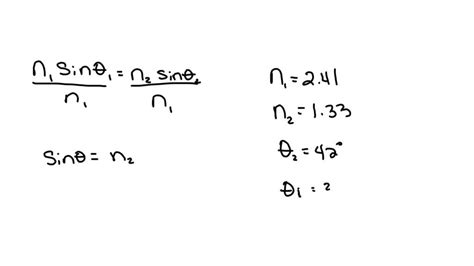 n₁ sinθ₁ = n₂ sinθ₂
n₁ n₁
sinθ = n₂
n₁ = 2.41
n₂ = 1.33
θ₂ = 42°
θ₁ = ?